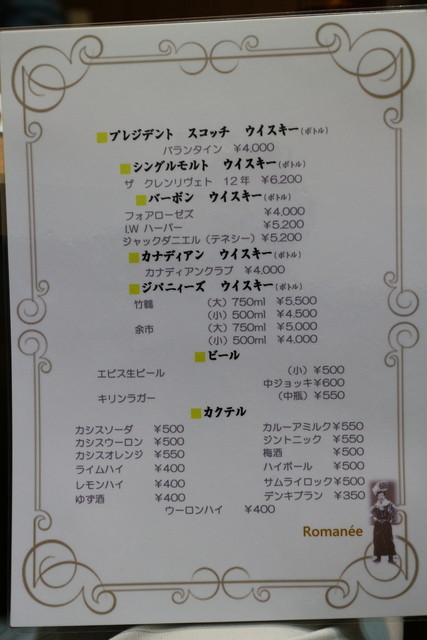 ■プレジデント スコッチ ウイスキー(ボトル)
バランタイン ¥4,000
■シングルモルト ウイスキー(ボトル)
ザ クレンリヴェト 12年 ¥6,200
■バーボン ウイスキー(ボトル)
フォアローゼズ ¥4,000
I.W ハーパー ¥5,200
ジャックダニエル(テネシー) ¥5,200
■カナディアン ウイスキー(ボトル)
カナディアンクラブ ¥4,000
■ジパニィーズ ウイスキー(ボトル)
竹鶴 (大) 750ml ¥5,500
(小) 500ml ¥4,500
余市 (大) 750ml ¥5,000
(小) 500ml ¥4,000
■ビール
エビス生ビール (小) ¥500
中ジョッキ ¥600
キリンラガー (中瓶) ¥550
■カクテル
カシスソーダ ¥500 カルーアミルク ¥550
カシスウーロン ¥500 ジントニック ¥550
カシスオレンジ ¥550 梅酒 ¥500
ライムハイ ¥400 ハイボール ¥500
レモンハイ ¥400 サムライロック ¥500
ゆず酒 ¥400 デンキブラン ¥350
ウーロンハイ ¥400
Romanée